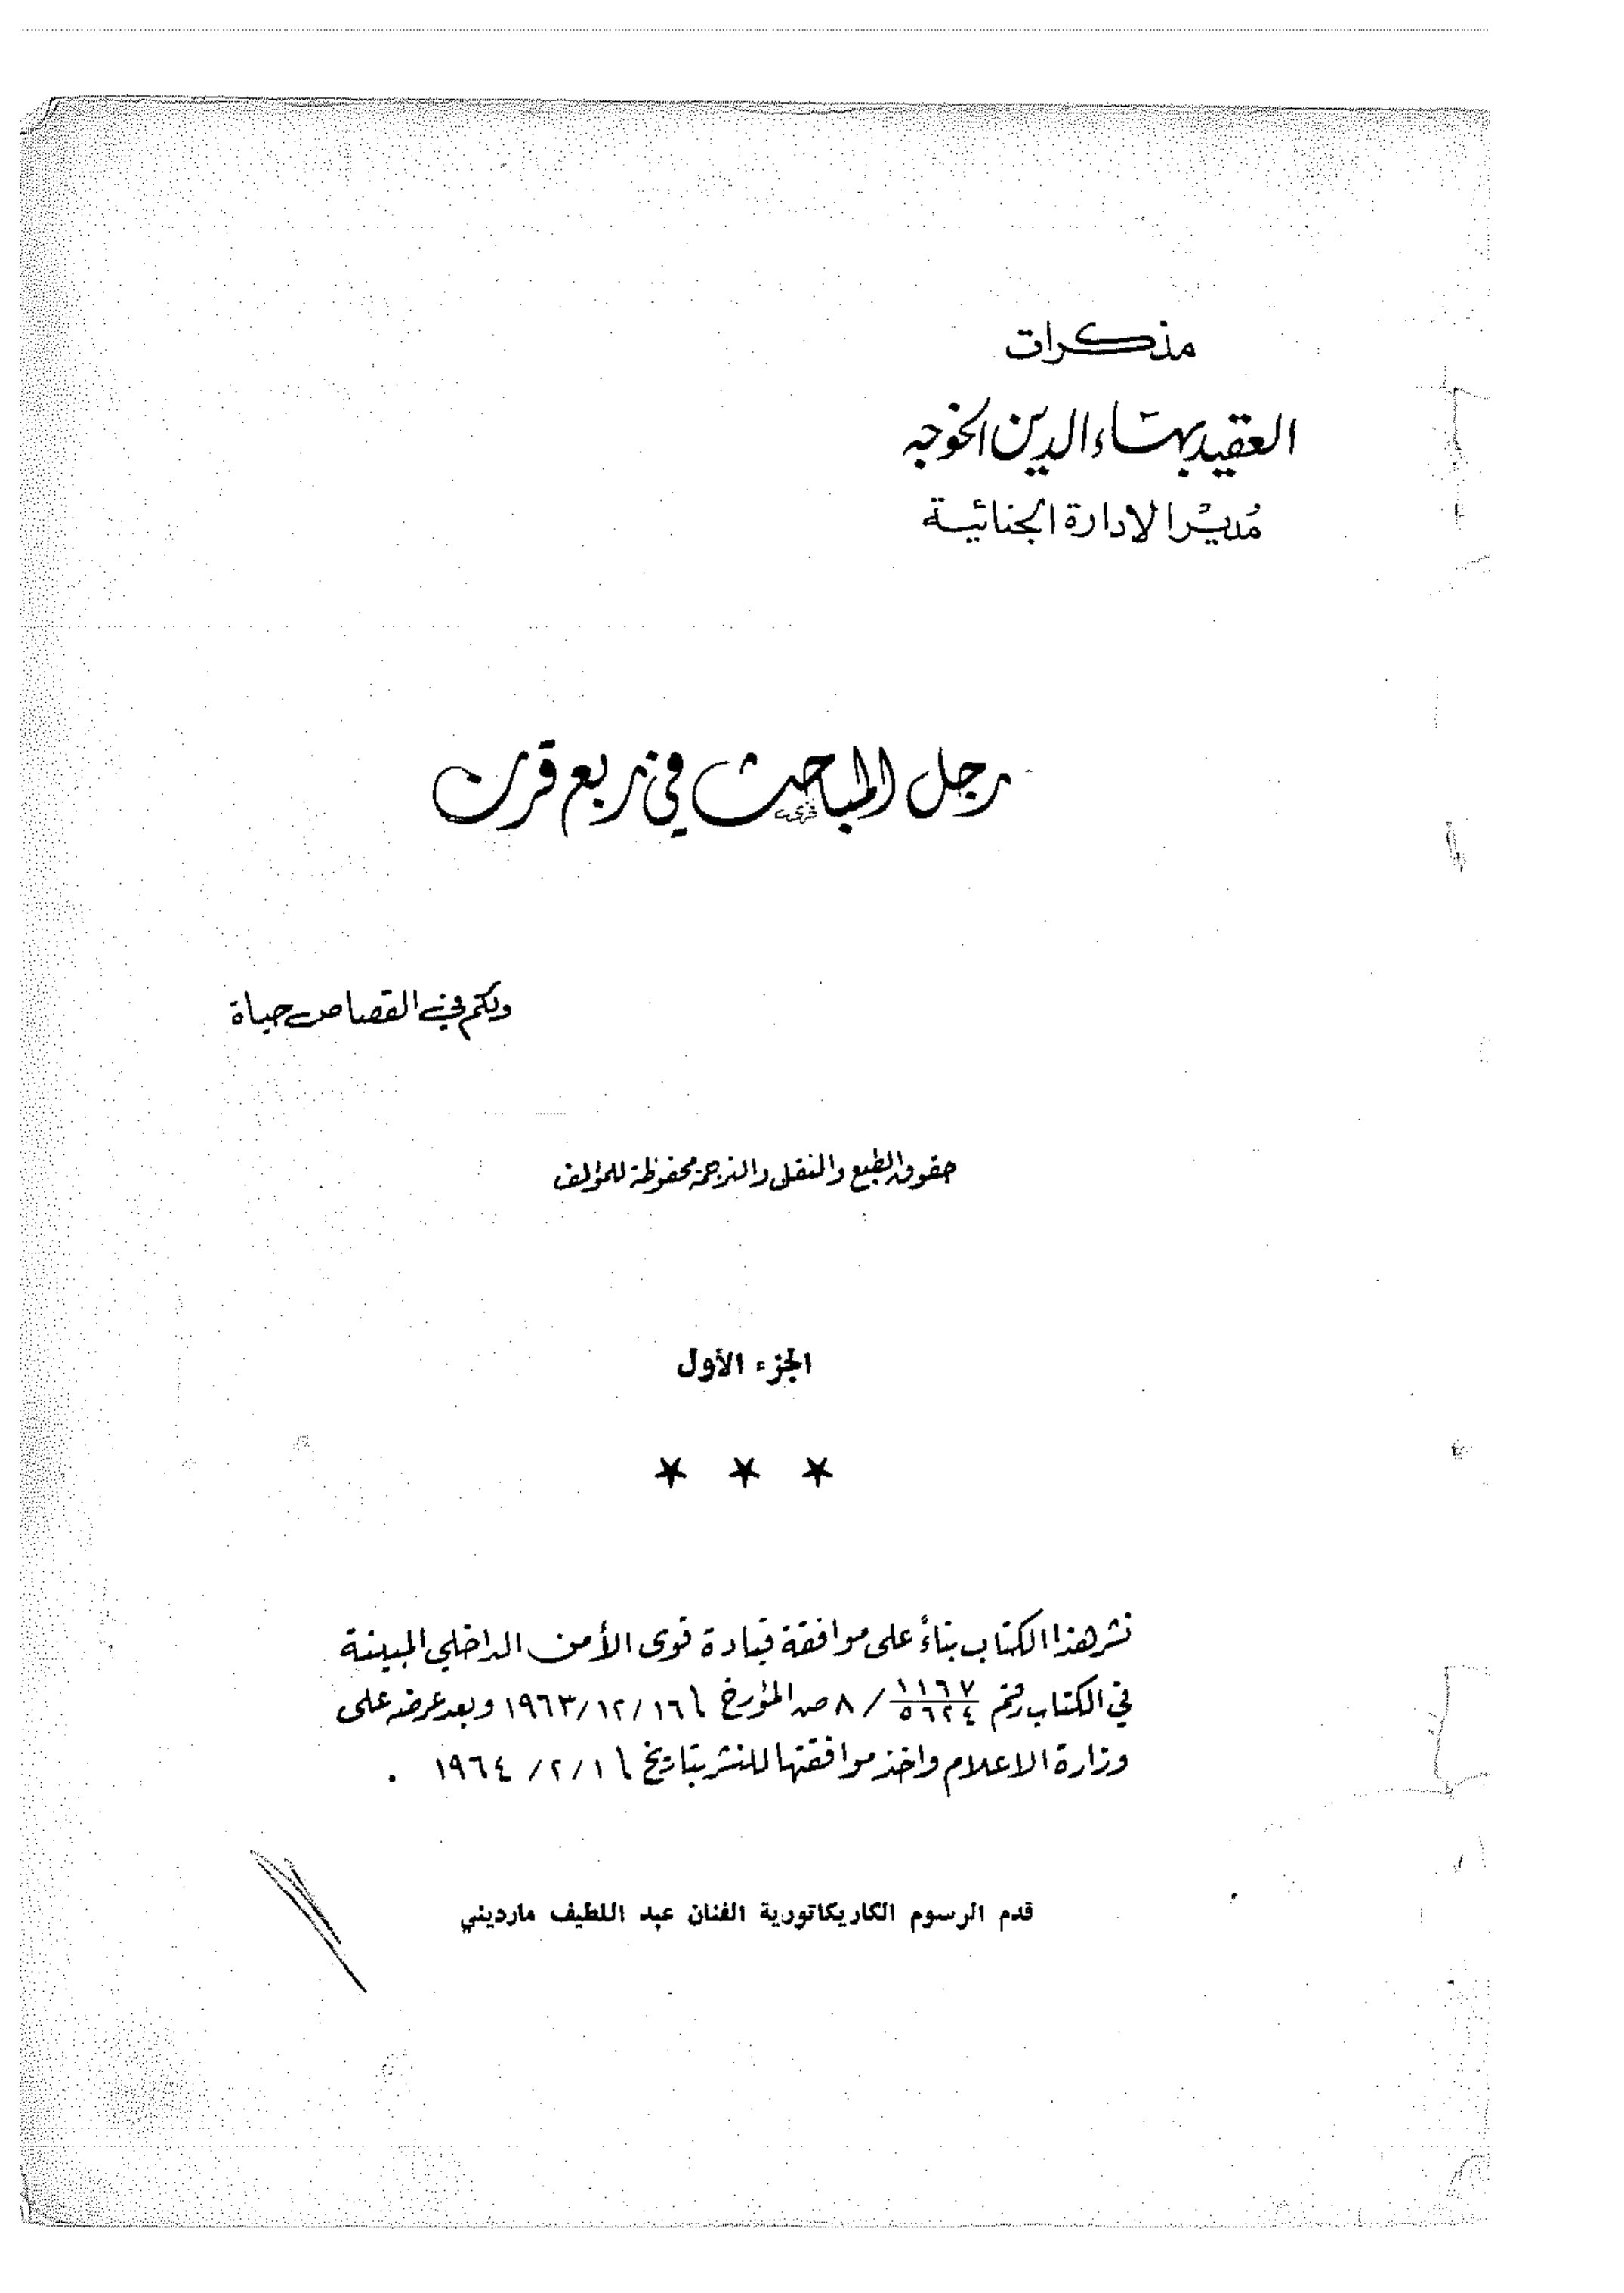 مذكرات
العقيد بهاء الدين الخوجه
مدير الادارة الجنائية
رجل المباحث في ربع قرن
ولكم في القصاص حياة
حقوق الطبع والنقل والترجمة محفوظة للمؤلف
الجزء الأول
★ ★ ★
نشر هذا الكتاب بناءً على موافقة قيادة قوى الأمن الداخلي المبينة
في الكتاب رقم ١١٦٧/٥٦٢٤ / ٨ ص المؤرخ ١٦/١٢/١٩٦٣ وبعد عرضه على
وزارة الاعلام واخذ موافقتها للنشر بتاريخ ١/٢/١٩٦٤ .
قدم الرسوم الكاريكاتورية الفنان عبد اللطيف مارديني